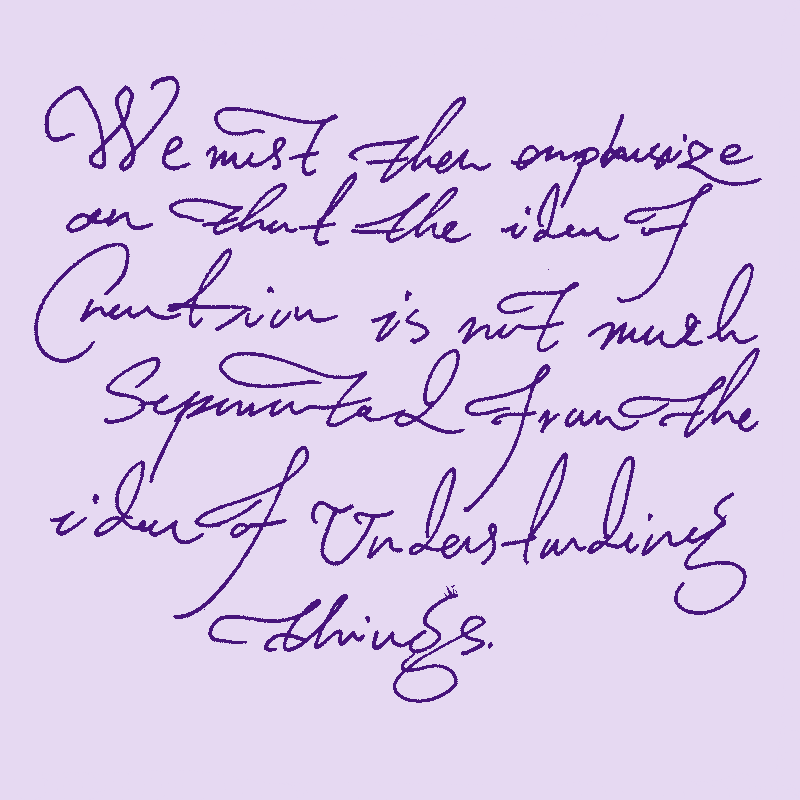 We must then emphasize
on that the idea of
Creation is not much
Separated from the
idea of Understanding
things.